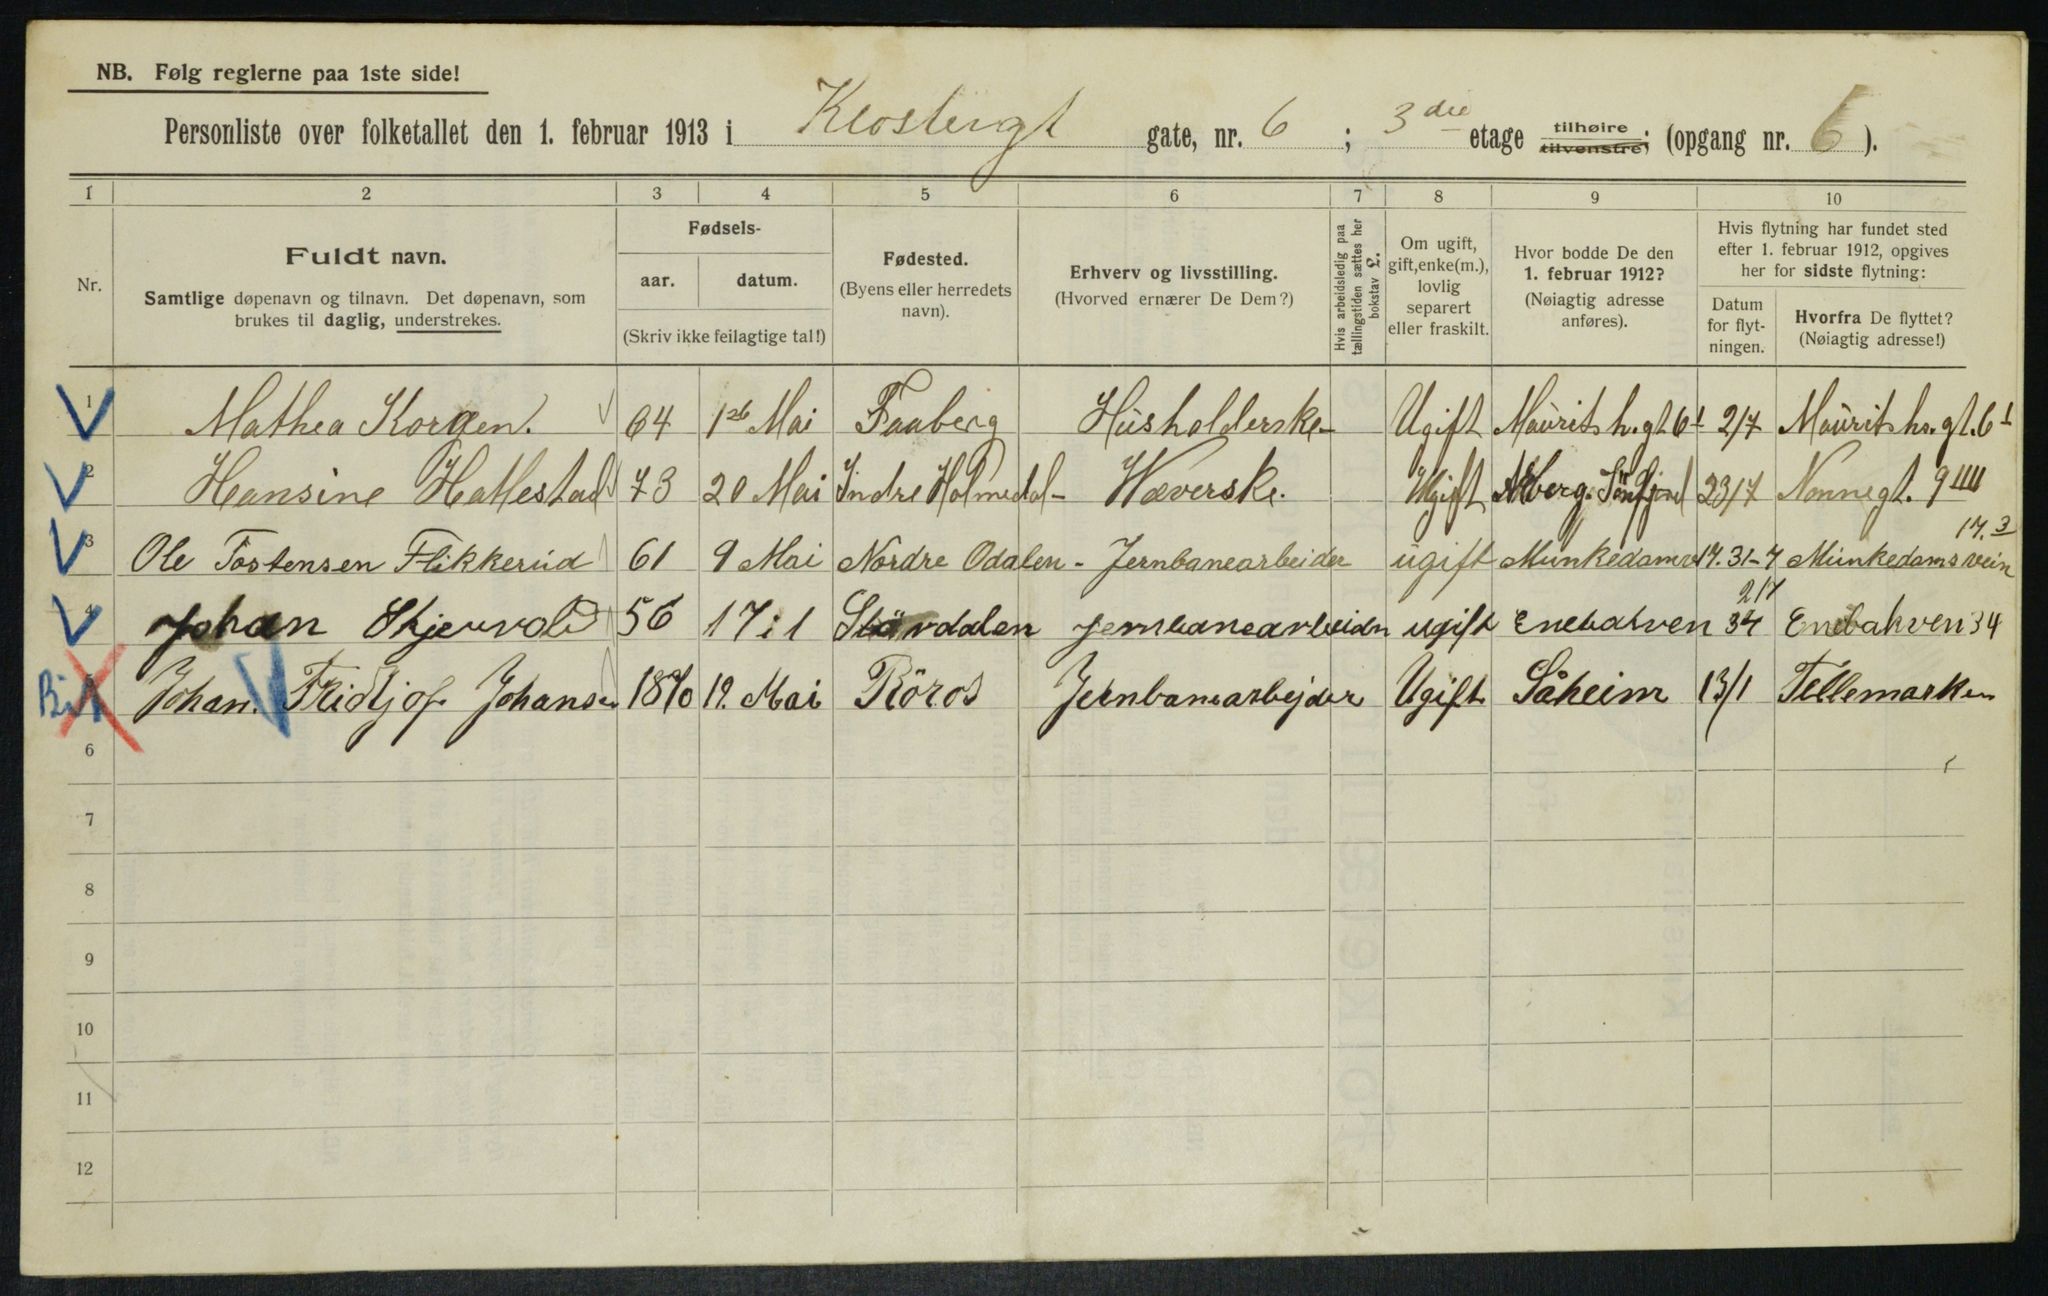 NB. Følg reglerne paa 1ste side!
Personliste over folketallet den 1. februar 1913 i Klostergt gate, nr. 6 ; 3die etage tilhøire tilvenstre; (opgang nr. 6 ).
1 2 3 4 5 6 7 8 9 10
Nr.
Fuldt navn.
Samtlige døpenavn og tilnavn. Det døpenavn, som
brukes til daglig, understrekes.
Fødsels-
aar. datum.
(Skriv ikke feilagtige tal!)
Fødested.
(Byens eller herredets
navn).
Erhverv og livsstilling.
(Hvorved ernærer De Dem?)
Hvis arbeidsledig paa
tællingstiden sættes her
bokstav L.
Om ugift,
gift, enke(m.),
lovlig
separert
eller fraskilt.
Hvor bodde De den
1. februar 1912?
(Nøiagtig adresse
anføres).
Hvis flytning har fundet sted
efter 1. februar 1912, opgives
her for sidste flytning:
Datum
for flyt-
ningen.
Hvorfra De flyttet?
(Nøiagtig adresse!)
1 Mathea Korgen. 64 1ste Mai Faaberg Husholderske Ugift Maurits h. gt 6 1 2/7 Maurits hs. gt. 6 1
2 Hansine Hatlestad 73 20 Mai Indre Holmedal Wæverske. Ugift Söndfjord 23/7 Nonnegt. 9 IIII
3 Ole Tostensen Flikkerud 61 9 Mai Nordre Odalen Jernbanearbeider ugift Munkedamsv 17. 31-7 Munkedamsvein 17. 3
4 Johan Skjervold 56 17 : 1 Stördalen jernbanearbeider ugift Enebakven 34 2/7 Enebakven 34
5 Johan. Fridtjof Johansen 1870 19. Mai Röros Jernbanearbejder Ugift Såheim 13/1 Tellemarken
6
7
8
9
10
11
12